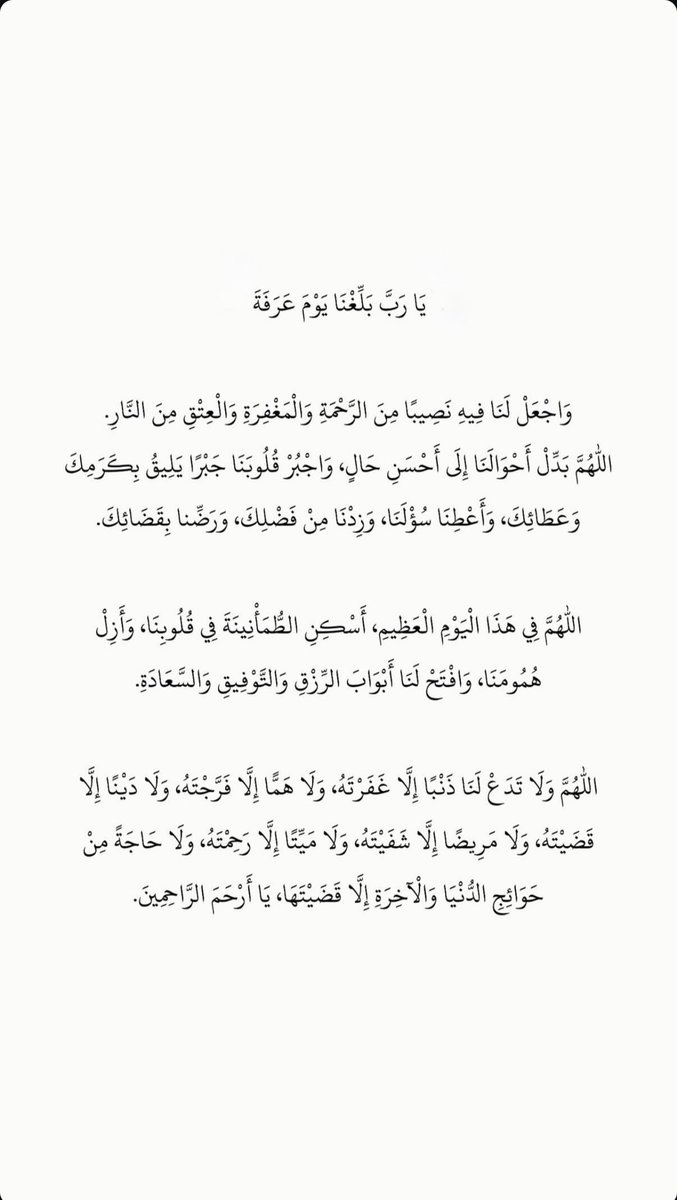 يَا رَبَّ بَلِّغْنَا يَوْمَ عَرَفَةَ
وَاجْعَلْ لَنَا فِيهِ نَصِيبًا مِنَ الرَّحْمَةِ وَالْمَغْفِرَةِ وَالْعِتْقِ مِنَ النَّارِ.
اللَّهُمَّ بَدِّلْ أَحْوَالَنَا إِلَى أَحْسَنِ حَالٍ، وَاجْبُرْ قُلُوبَنَا جَبْرًا يَلِيقُ بِكَرَمِكَ
وَعَطَائِكَ، وَأَعْطِنَا سُؤْلَنَا، وَزِدْنَا مِنْ فَضْلِكَ، وَرَضِّنا بِقَضَائِكَ.
اللَّهُمَّ فِي هَذَا الْيَوْمِ الْعَظِيمِ، أَسْكِنِ الطُّمَأْنِينَةَ فِي قُلُوبِنَا، وَأَزِلْ
هُمُومَنَا، وَافْتَحْ لَنَا أَبْوَابَ الرِّزْقِ وَالتَّوْفِيقِ وَالسَّعَادَةِ.
اللَّهُمَّ وَلَا تَدَعْ لَنَا ذَنْبًا إِلَّا غَفَرْتَهُ، وَلَا هَمًّا إِلَّا فَرَّجْتَهُ، وَلَا دَيْنًا إِلَّا
قَضَيْتَهُ، وَلَا مَرِيضًا إِلَّا شَفَيْتَهُ، وَلَا مَيِّتًا إِلَّا رَحِمْتَهُ، وَلَا حَاجَةً مِنْ
حَوَائِجِ الدُّنْيَا وَالْآخِرَةِ إِلَّا قَضَيْتَهَا، يَا أَرْحَمَ الرَّاحِمِينَ.